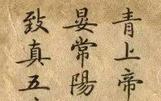 青上帝
晏常陽
致真五